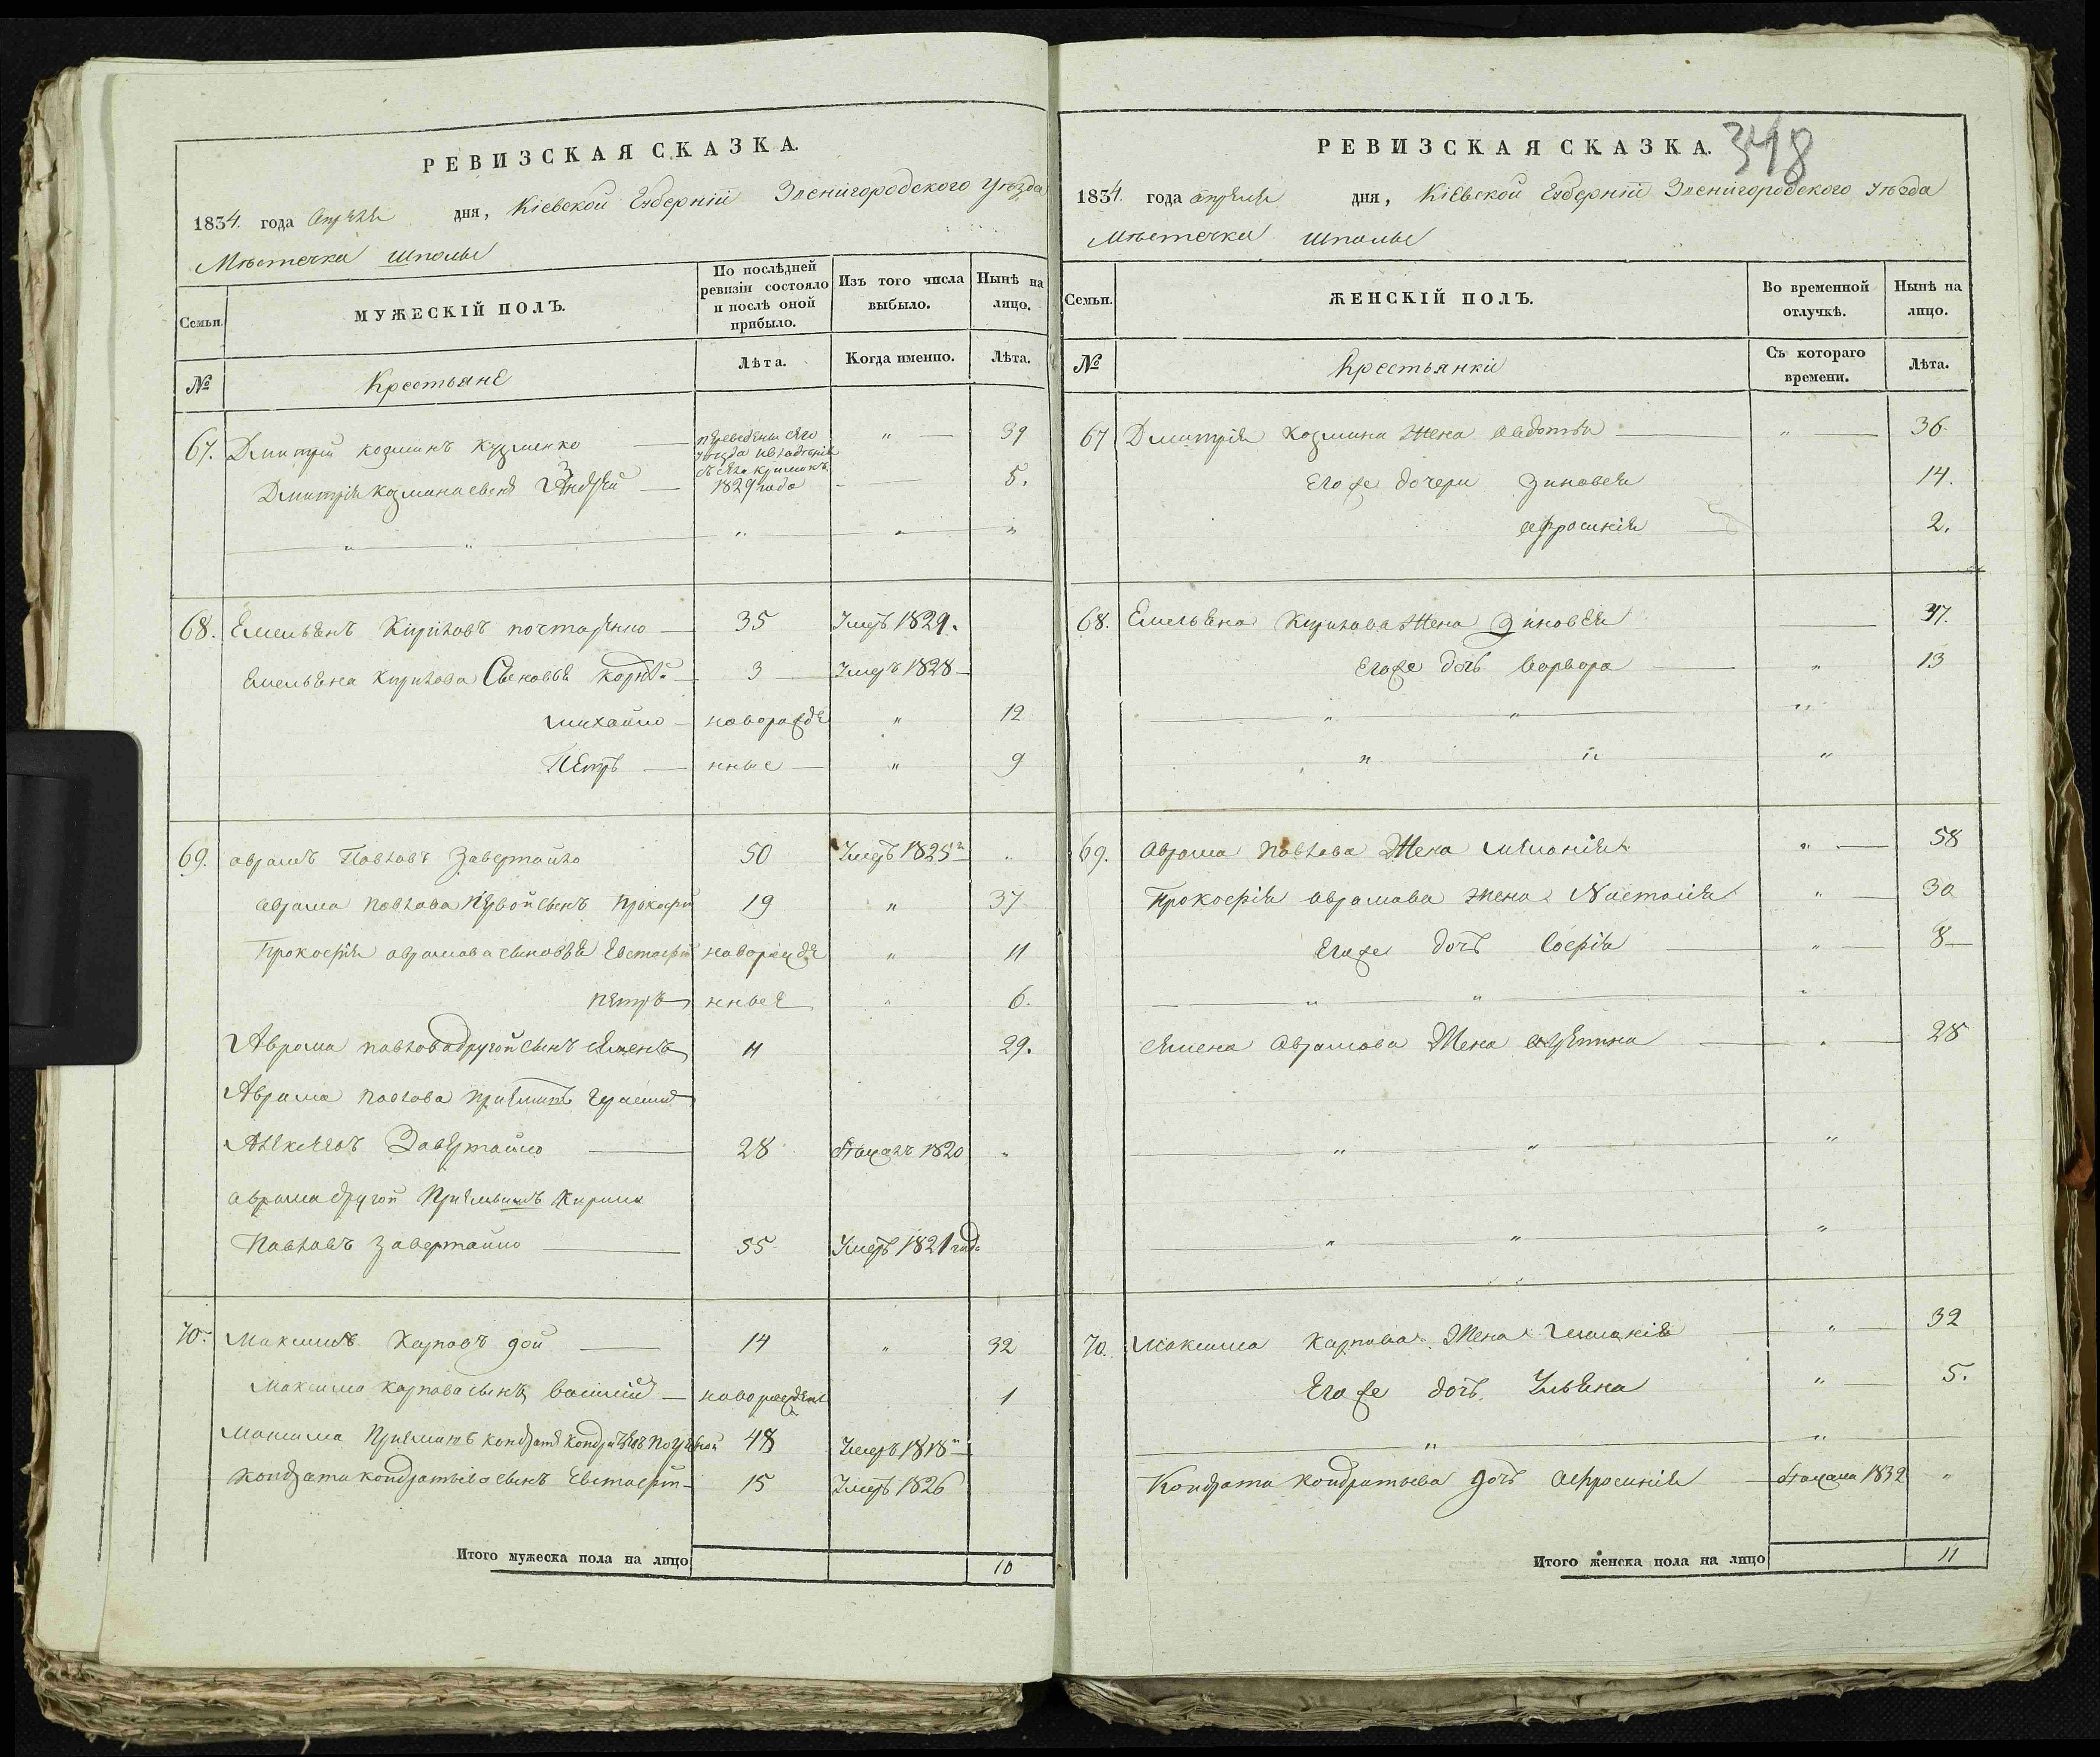 РЕВИЗСКАЯ СКАЗКА.
1834. года Апреля дня, Кіевской Губерніи Звенигородского Уѣзда
Мѣстечка Шполы
Семьи.
МУЖЕСКІЙ ПОЛЪ.
По послѣдней ревизіи состояло и послѣ оной прибыло.
Изъ того числа выбыло.
Нынѣ на лицо.
№
Крестьяне
Лѣта.
Когда именно.
Лѣта.
67. Дмитрій Козминъ Кузменко — переведены сего „ — 39
уезда
Дмитрія Козмина сынъ Андрей — 1829 года - — 5.
„ „ „ „ „
68. Емельянъ Кириловъ — 35 Умеръ 1829.
Емельяна Кирилова Сыновья Корнѣй — 3 Умеръ 1828 —
михайло — наворожде „ 12
Петръ — нные — „ 9
69. Аврамъ Павловъ Завертайло 50 Умеръ 1825 „
Аврама Павлова Первой сынъ Прокофій 19 „ 37
Прокофія Аврамова сыновья Евстафій наворожде „ 11
Петръ нные „ 6.
Аврама Павлова другой сынъ Семенъ 11 29.
Аврама Павлова Приемышъ Герасимъ
Алексеевъ Завертайло — 28 1820 „
Аврама другой Приемышъ Кирило
Павловъ Завертайло — 55 Умеръ 1821 года
70. Максимъ Карповъ — 14 „ 32
Максима Карпова сынъ Василій — наворожденъ 1
Максима Приемышъ Кондратъ Кондратьевъ 48 Умеръ 1818
Кондрата Кондратьева сынъ Евстафій — 15 Умеръ 1826
Итого мужеска пола на лицо 10
РЕВИЗСКАЯ СКАЗКА.
348
1834. года Апреля дня, Кіевской Губерніи Звенигородского Уѣзда
Мѣстечка Шполы
Семьи.
ЖЕНСКІЙ ПОЛЪ.
Во временной отлучкѣ.
Нынѣ на лицо.
№
Крестьянки
Съ котораго времени.
Лѣта.
67 Дмитрія Козмина Жена Авдотья — „ — 36
Его же дочери Зиновея 14.
Афросинія 2.
68. Емельяна Кирилова Жена Зиновея — 37.
Его же дочь Варвара — „ 13
„ „ „
„ „ „
69. Аврама Павлова Жена Меланія „ — 58
Прокофія Аврамова Жена Настасія „ — 30
Его же дочь Софія — „ — 8 —
„ „ „
Семена Аврамова Жена — „ — 28
„ „ „
„ „ „
70. Максима Карпова Жена — „ — 32
Его же дочь Ульяна „ — 5.
„ „
Кондрата Кондратьева дочь Афросинія — 1832 „
Итого женска пола на лицо 11